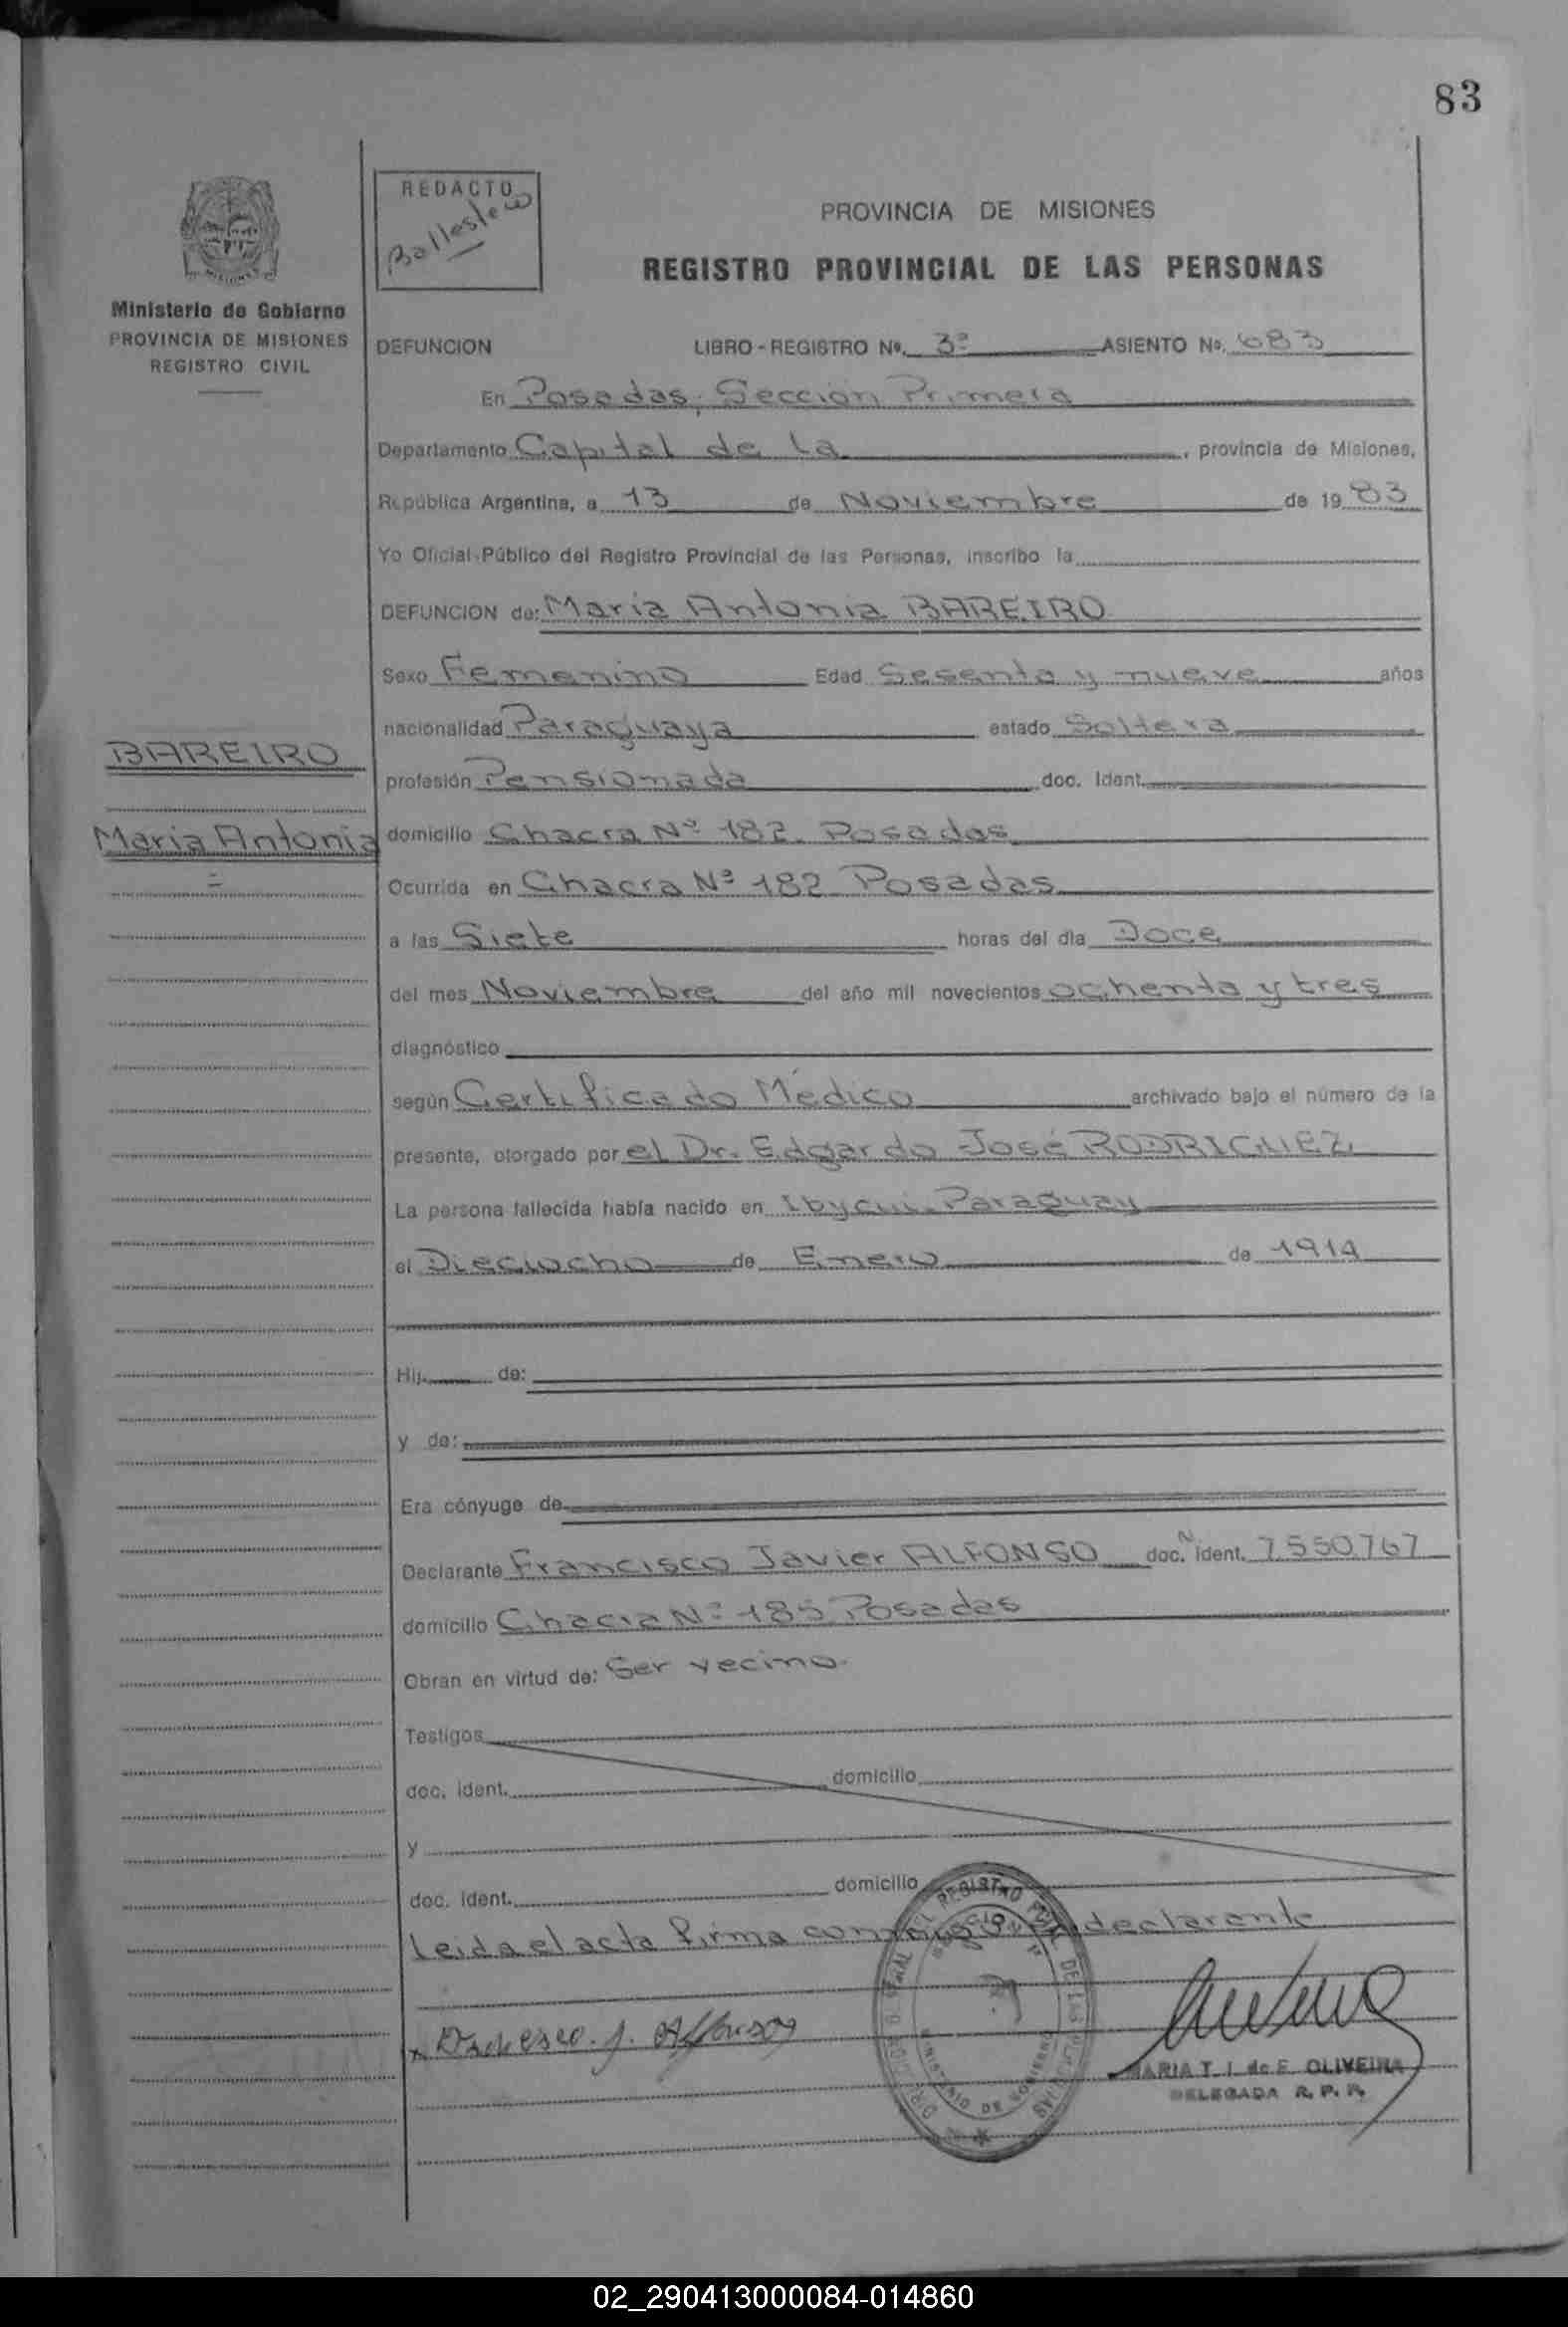 83
REDACTO
Ballestero
PROVINCIA DE MISIONES
REGISTRO PROVINCIAL DE LAS PERSONAS
Ministerio de Gobierno
PROVINCIA DE MISIONES
REGISTRO CIVIL
DEFUNCION LIBRO - REGISTRO Nº. 3º ASIENTO Nº. 683
En Posadas, Sección Primera
Departamento Capital de la, provincia de Misiones,
República Argentina, a 13 de Noviembre de 1983
Yo Oficial Público del Registro Provincial de las Personas, inscribo la
DEFUNCION de: Maria Antonia BAREIRO
Sexo Femenino Edad Sesenta y nueve años
nacionalidad Paraguaya estado Soltera
BAREIRO
profesión Pensionada doc. Ident.
Maria Antonia
domicilio Chacra Nº 182 Posadas
Ocurrida en Chacra Nº 182 Posadas
a las Siete horas del día Doce
del mes Noviembre del año mil novecientos ochenta y tres
diagnóstico
según Certificado Médico archivado bajo el número de la
presente, otorgado por el Dr. Edgardo José RODRIGUEZ
La persona fallecida había nacido en Ibycui - Paraguay
el Dieciocho de Enero de 1914
Hij de:
y de:
Era cónyuge de
Declarante Francisco Javier ALFONSO doc. ident. 7550767
domicilio Chacra Nº 185 Posadas
Obran en virtud de: Ser vecino.
Testigos
doc. ident. domicilio
y
doc. ident. domicilio
Leida el acta firma conmigo el declarante
MARIA T. I. de E. OLIVEIRA
DELEGADA R. P. P.
MINISTERIO DE GOBIERNO
02_290413000084-014860